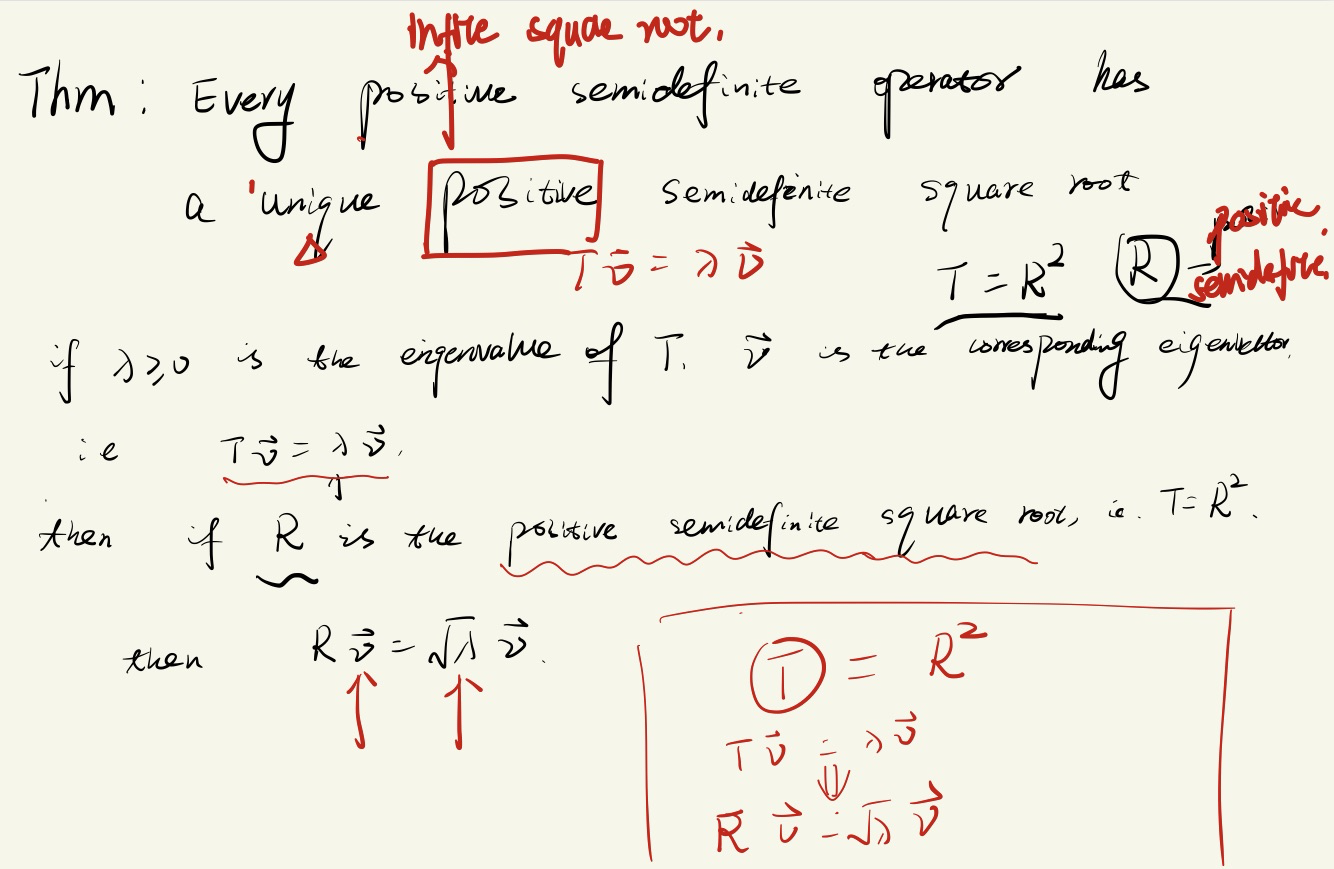 infite squae root.
Thm: Every positive semidefinite operator has
a unique positive semidefinite square root
T v⃗ = λ v⃗
T = R² R positive semidefinite.
if λ ≥ 0 is the eigenvalue of T. v⃗ is the corresponding eigenvector.
i.e T v⃗ = λ v⃗.
then if R is the positive semidefinite square root, i.e. T = R².
then R v⃗ = √λ v⃗.
T = R²
T v⃗ = λ v⃗
⇓
R v⃗ = √λ v⃗